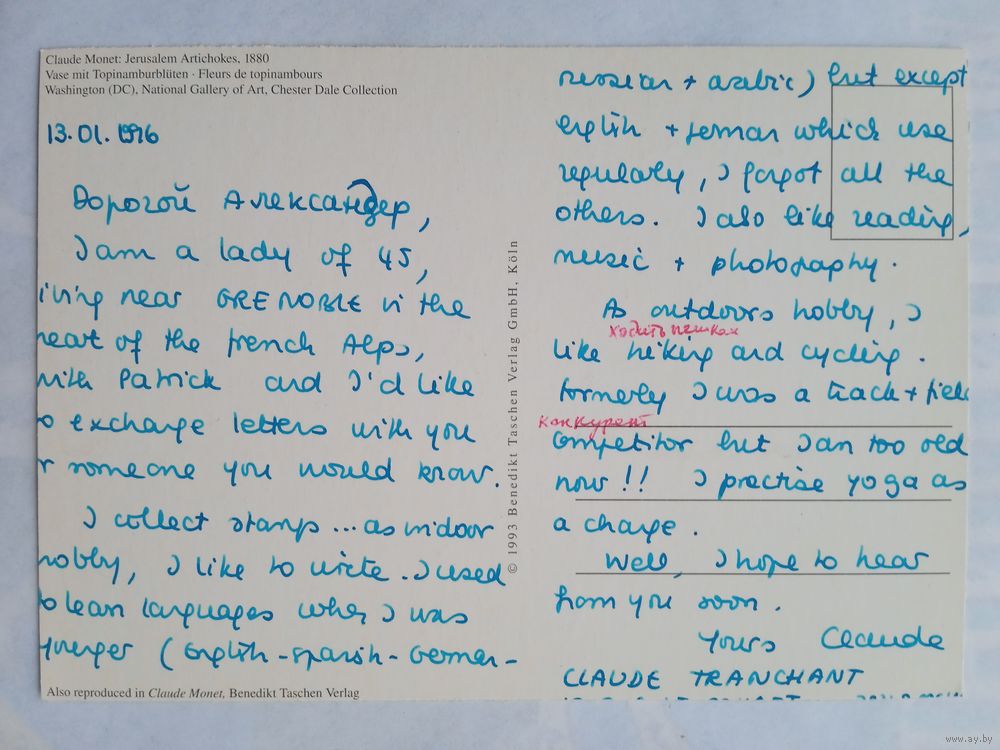 Claude Monet: Jerusalem Artichokes, 1880
Vase mit Topinamburblüten · Fleurs de topinambours
Washington (DC), National Gallery of Art, Chester Dale Collection
13.01.1996
Дорогой Александер,
I am a lady of 45,
living near GRENOBLE in the
heart of the french Alps,
with Patrick and I'd like
to exchange letters with you
or someone you would know.
I collect stamps ... as indoor
hobby, I like to write. I used
to learn languages when I was
younger (English - spanish - German -
Also reproduced in Claude Monet, Benedikt Taschen Verlag
© 1993 Benedikt Taschen Verlag GmbH, Köln
russian + arabic) but except
english + german which use
regularly, I forgot all the
others. I also like reading,
music + photography.
As outdoors hobby, I
ходить пешком
like hiking and cycling.
Formerly I was a track + field
конкурент
competitor but I am too old
now!! I practise yoga as
a change.
Well, I hope to hear
from you soon.
Yours Claude
CLAUDE TRANCHANT
www.ay.by